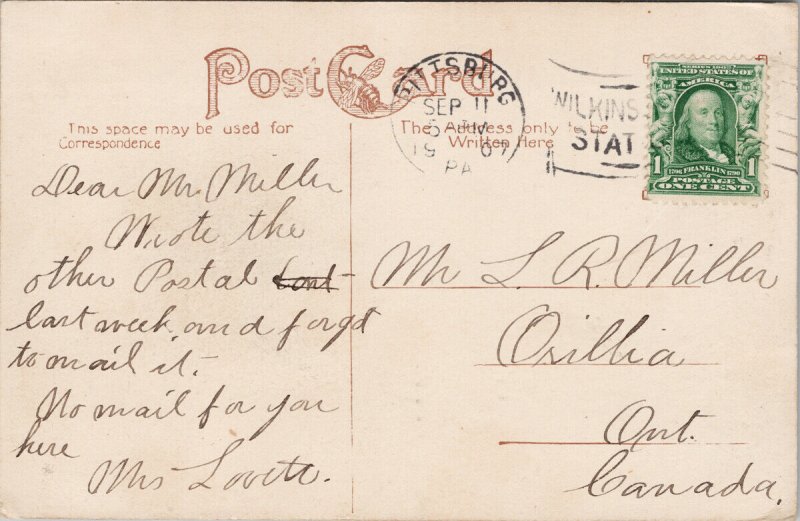 Post Card
This space may be used for
Correspondence
The Address only to be
Written Here
PITTSBURG
SEP 11
PA
WILKINS
STAT
SERIES 1902
UNITED STATES OF
AMERICA
1706 FRANKLIN 1790
POSTAGE
1 ONE CENT 1
Dear Mr. Miller
Wrote the
other Postal
last week, and forgot
to mail it.
No mail for you
here
Mrs Lovett.
Mr L. R. Miller
Orillia
Ont.
Canada.